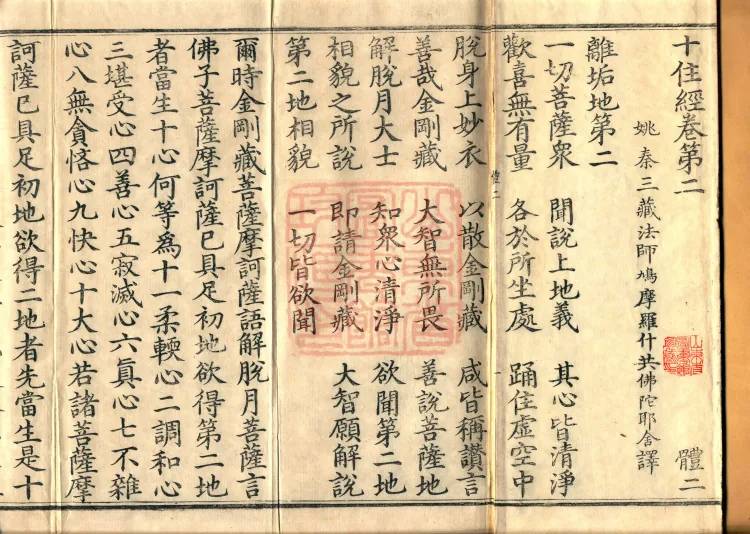 十住經卷第二 體二
姚秦三藏法師鳩摩羅什共佛陀耶舍譯
離垢地第二
一切菩薩眾 聞說上地義 其心皆清淨
歡喜無有量 各於所坐處 踊住虛空中
體二
脫身上妙衣 以散金剛藏 咸皆稱讚言
善哉金剛藏 大智無所畏 善說菩薩地
解脫月大士 知眾心清淨 欲聞第二地
相貌之所說 即請金剛藏 大智願解說
第二地相貌 一切皆欲聞
爾時金剛藏菩薩摩訶薩語解脫月菩薩言
佛子菩薩摩訶薩已具足初地欲得第二地
者當生十心何等為十一柔輭心二調和心
三堪受心四善心五寂滅心六真心七不雜
心八無貪悋心九快心十大心若諸菩薩摩
訶薩已具足初地欲得二地者先當生是十